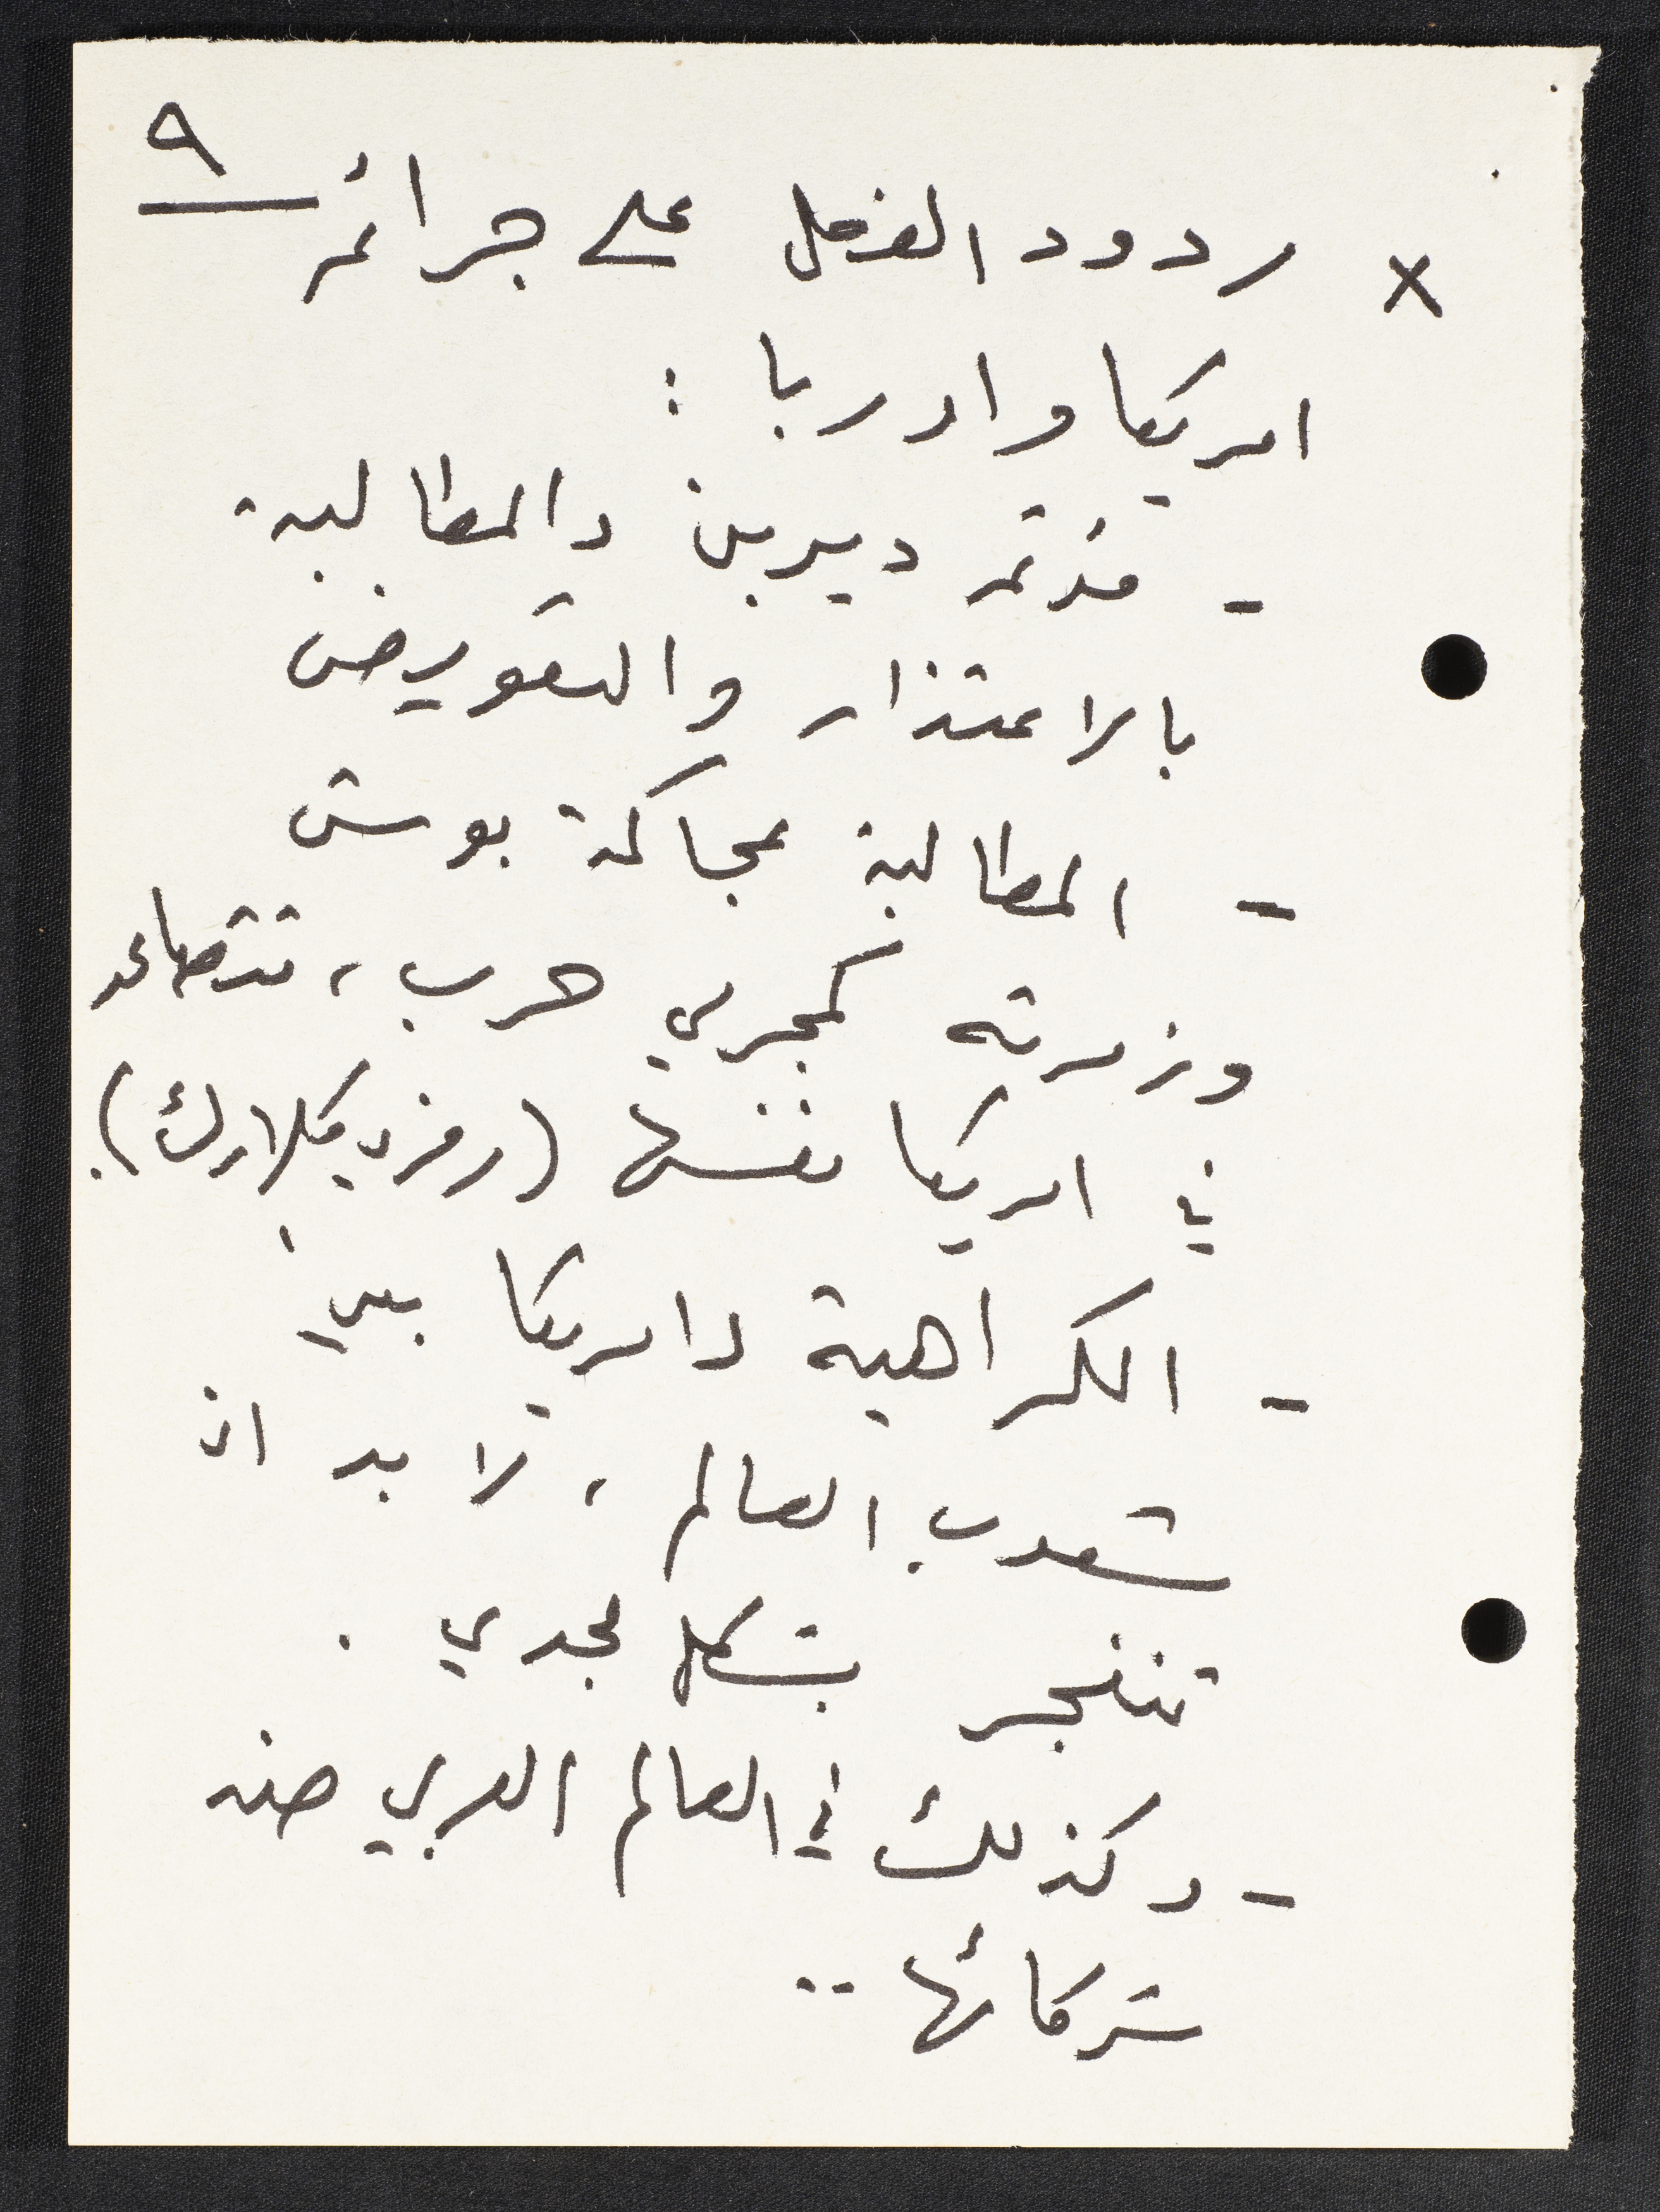 ٩
x ردود الفعل على جرائم
امريكا واوربا :
- مؤتمر ديربن والمطالبة
بالاعتذار والتعويض
- المطالبة بمحاكمة بوش
وزمرته كمجرمي حرب ، تتصاعد
في امريكا نفسها (رمزي كلارك).
- الكراهية لامريكا بين
شعوب العالم ، لا بد ان
تنفجر بشكل مجدي .
- وكذلك في العالم العربي ضد
شركائها ..